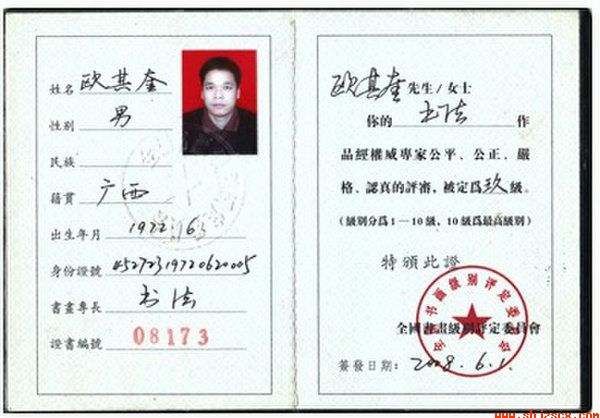 姓名 欧其奎
性别 男
民族
籍貫 广西
出生年月 1972.6
身份證號
書畫專長 书法
證書編號 08173
欧其奎 先生/女士
你的 书法 作
品經權威專家公平、公正、嚴
格、認真的評審,被定爲玖級。
(級别分爲1—10級,10級爲最高級别)
特頒此證
全國書畫級别評定委員會
全国书画级别评定委员会
簽發日期: 2008.6.1